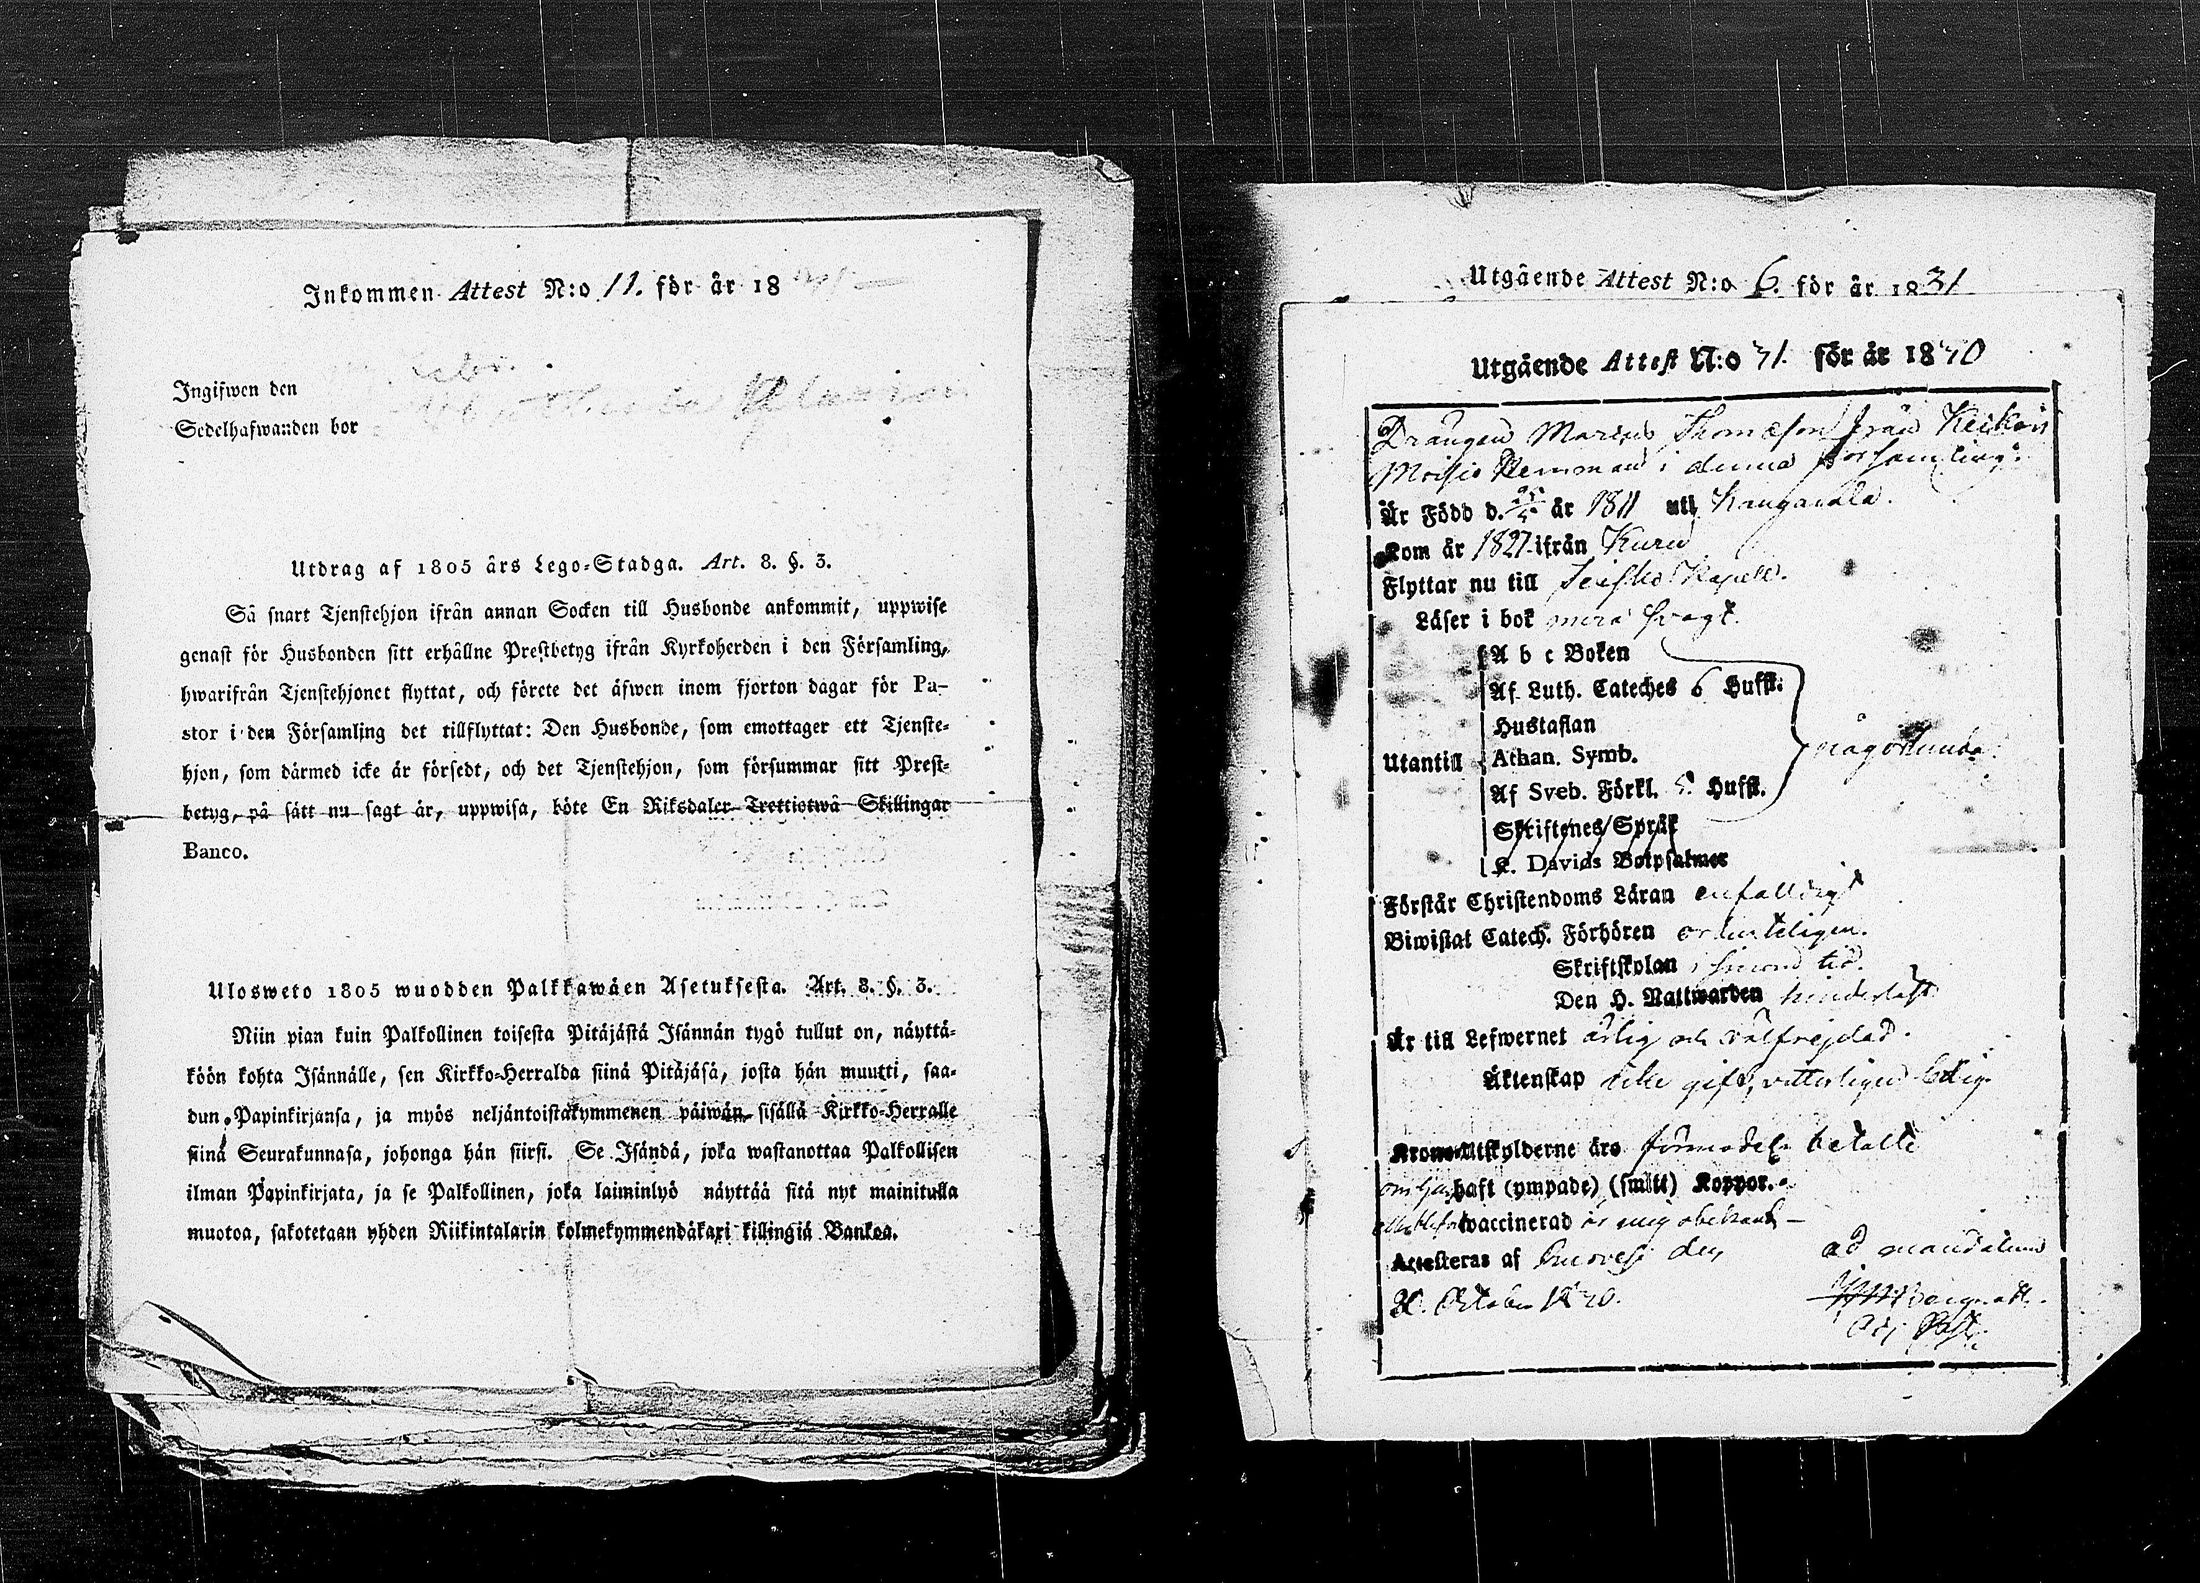 Inkommen Attest N:o 11. för år 18
Ingifwen den
Sedelhafwanden bor
Utdrag af 1805 års Lego-Stadga. Art. 8. §. 3.
Så snart Tjenstehjon ifrån annan Socken till Husbonde ankommit, uppwise
genast för Husbonden sitt erhållne Prestbetyg ifrån Kyrkoherden i den Församling,
hwarifrån Tjenstehjonet flyttat, och förete det äfwen inom fjorton dagar för Pa-
stor i den Församling det tillflyttat: Den Husbonde, som emottager ett Tjenste-
hjon, som därmed icke är försedt, och det Tjenstehjon, som försummar sitt Prest-
betyg, på sätt nu sagt är, uppwisa, böte En Riksdaler Trettiotwå Skillingar
Banco.
Ulosweto 1805 wuodden Palkkawäen Asetuksesta. Art. 8. §. 3.
Niin pian kuin Palkollinen toisesta Pitäjästä Isännän tygö tullut on, näyttä-
köön kohta Isännälle, sen Kirkko-Herralda siinä Pitäjäsä, josta hän muutti, saa-
dun Papinkirjansa, ja myös neljäntoistakymmenen päiwän sisällä Kirkko-Herralle
siinä Seurakunnasa, johonga hän siirsi. Se Isändä, joka wastanottaa Palkollisen
ilman Papinkirjata, ja se Palkollinen, joka laiminlyö näyttää sitä nyt mainitulla
muotoa, sakotetaan yhden Riikintalarin kolmekymmendäkaxi killingiä Bankoa.
Utgående Attest N:o 6. för år 1831
Utgående Attest N:o 71. för år 1840
Drängen Thomæson från
Moisio i denna församling.
Är Född d. 25/4 år 1811 uti Kangasala.
Kom år 1827 ifrån Kuru
Flyttar nu till Kapell.
Läser i bok svagt.
A b c Boken
Af Luth. Cateches 6 Hufst.
Hustaflan
Utantill Athan. Symb. någorlunda.
Af Sveb. Förkl. 5. Hufst.
Skriftenes Språk
K. Davids Botpsalmer
Förstår Christendoms Läran enfaldigt
Biwistat Catech. Förhören ordenteligen.
Skriftskolan i sinom tid.
Den H. Nattwarden
Är till Lefwernet ärlig och välfrejdad.
Äktenskap icke gift, vetterligen ledig
Krono-Utskylderne äro förmodel. betalte
om han haft (ympade) (smitt) Koppor.
eller blifvit waccinerad är mig obekant –
Attesteras af Ruovesi den ad mandatum
20. October 1840.
Adj. Past.